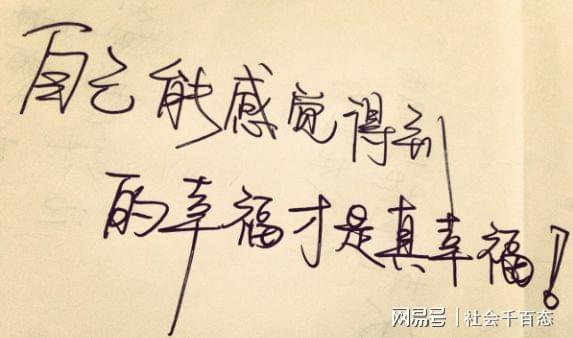 自己能感觉得到
的幸福才是真幸福！
网易号 | 社会千百态